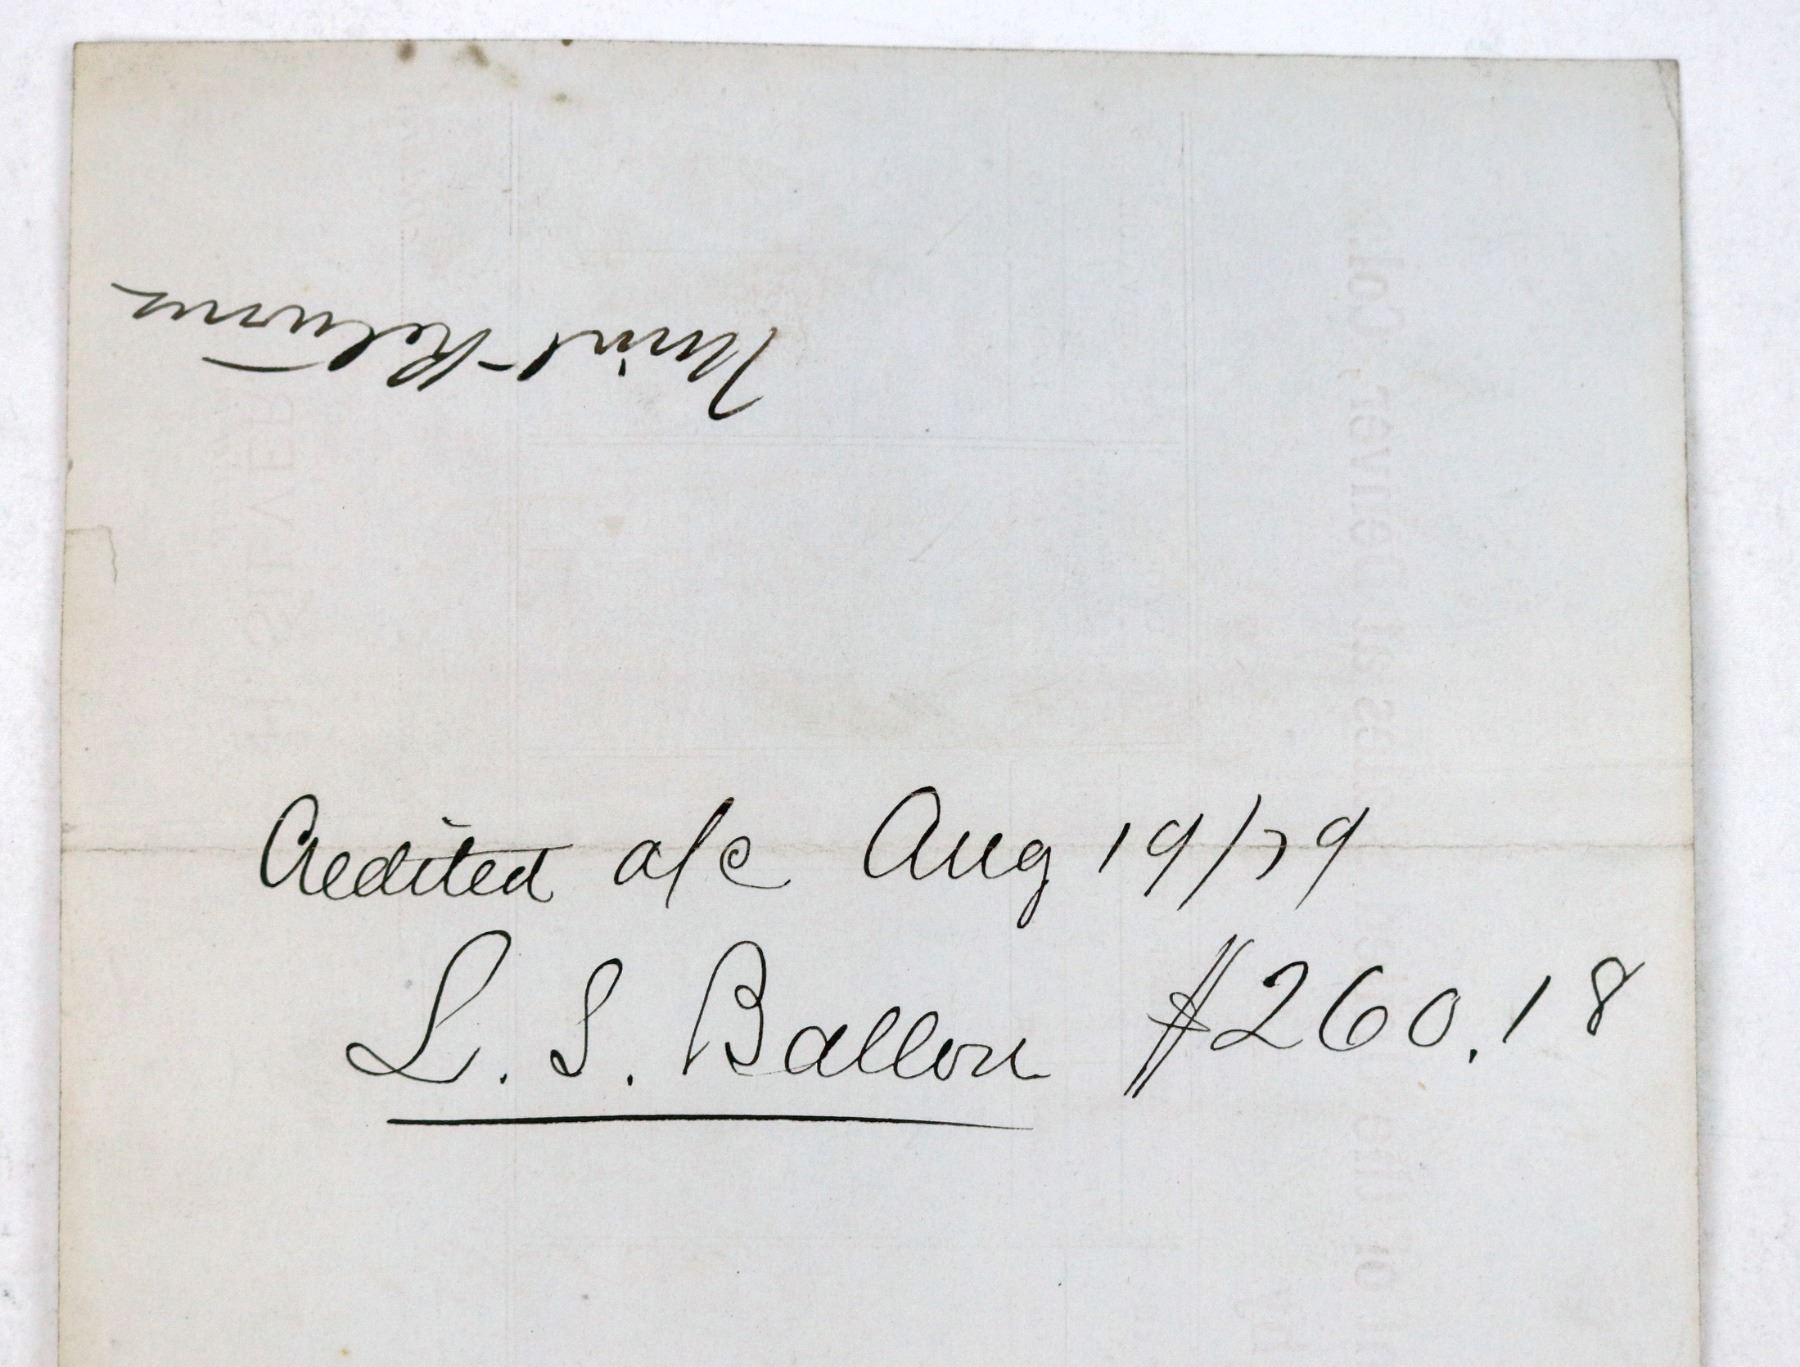 Mint Returns
Credited a/c Aug 19/79
L. S. Ballou $260.18